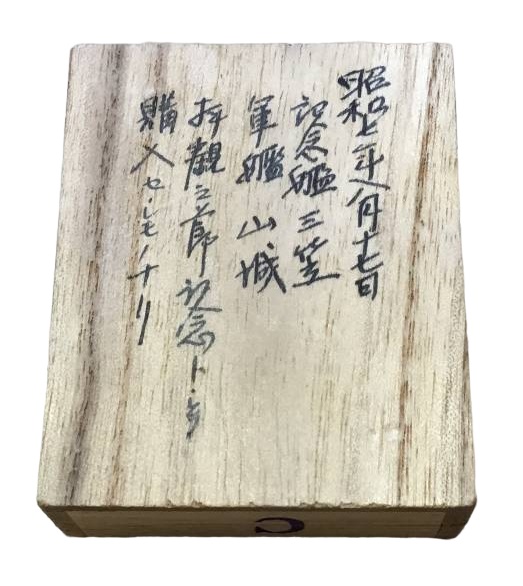 昭和七年八月十七日
記念艦三笠
軍艦山城
拝観之節記念トシ
購入セシモノナリ